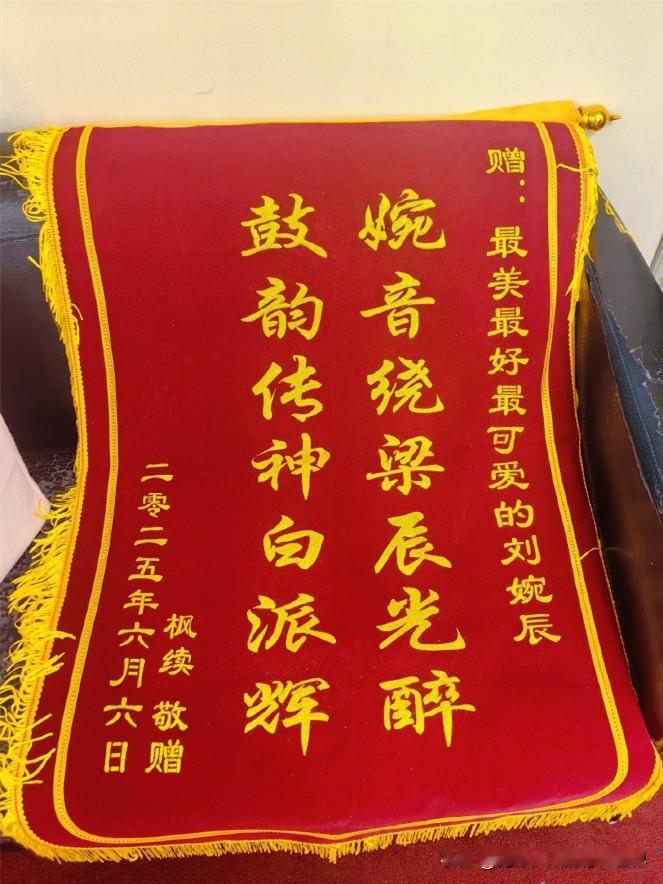 赠：最美最好最可爱的刘婉辰
婉音绕梁辰光醉
鼓韵传神白派辉
枫续 敬赠
二零二五年六月六日